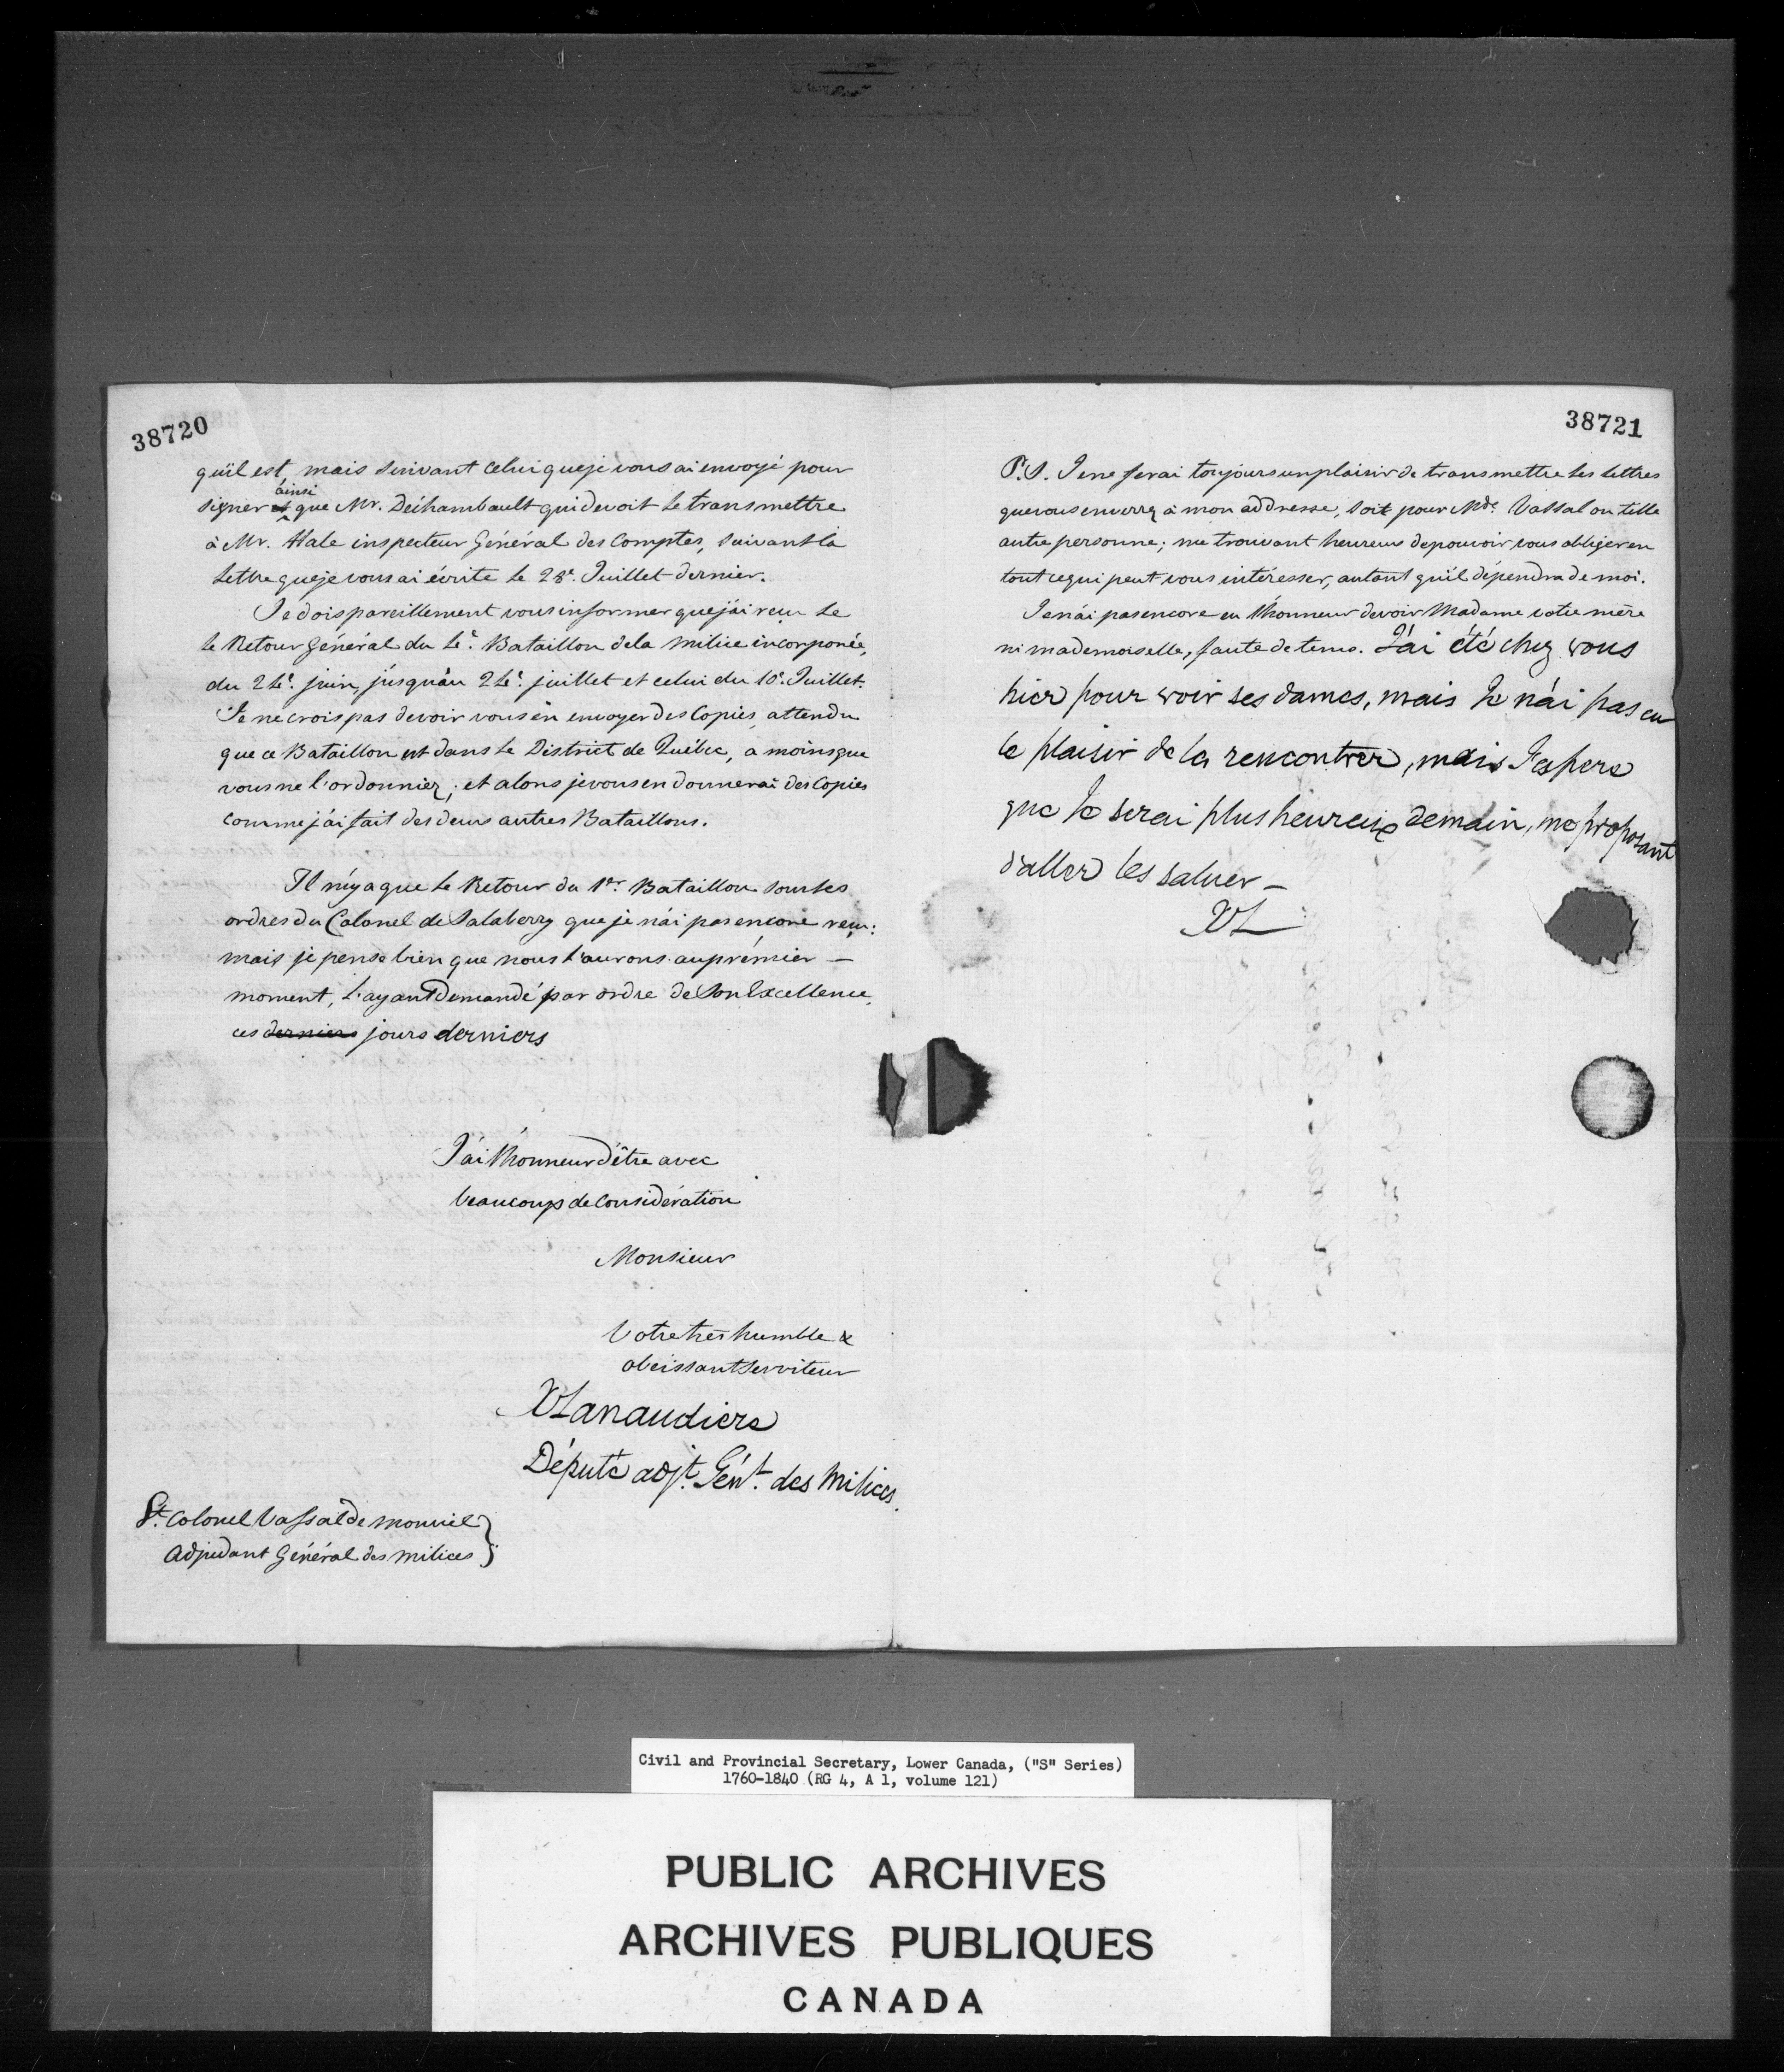 38720
qu'il est, mais suivant celui que je vous ai envoyé pour
signer et ainsi que Mr. Déchambault qui devoit le transmettre
à Mr. Hale inspecteur Général des Comptes, suivant la
lettre que je vous ai écrite le 28e. Juillet dernier.
Je dois pareillement vous informer que j'ai reçu le
le Retour Général du 4e. Bataillon de la milice incorporée,
du 24e. juin, jusqu'au 24e. juillet et celui du 10e. Juillet.
Je ne crois pas devoir vous en envoyer des Copies, attendu
que ce Bataillon est dans le District de Québec, a moins que
vous ne l'ordonniez; et alors je vous en donnerai des Copies
comme j'ai fait des deux autres Bataillons.
Il n'y a que le Retour du 1er. Bataillon sous les
ordres du Colonel de Salaberry que je n'ai pas encore reçu:
mais je pense bien que nous l'aurons au prémier —
moment, l'ayant demandé par ordre de Son Excellence,
ces derniers jours derniers
J'ai l'honneur d'être avec
beaucoup de Considération
Monsieur
Votre très humble &
obeissant Serviteur
XLanaudiere
Député adjt. Génl. des Milices.
Lt. Colonel Vassal de monviel }
Adjudant Général des milices }
38721
P.S. Je me ferai toujours un plaisir de transmettre les lettres
que vous enverrez à mon addresse, soit pour Mde. Vassal ou telle
autre personne; me trouvant heureux de pouvoir vous obliger en
tout ce qui peut vous intéresser, autant qu'il dépendra de moi.
Je n'ai pas encore eu l'honneur de voir Madame votre mère
ni mademoiselle, faute de tems. J'ai été chez vous
hier pour voir ses dames, mais Je n'ai pas eu
le plaisir de la rencontrer, mais J'espere
que Je serai plus heureux demain, me proposant
d'aller les saluer —
XL
Civil and Provincial Secretary, Lower Canada, ("S" Series)
1760-1840 (RG 4, A 1, volume 121)
PUBLIC ARCHIVES
ARCHIVES PUBLIQUES
CANADA